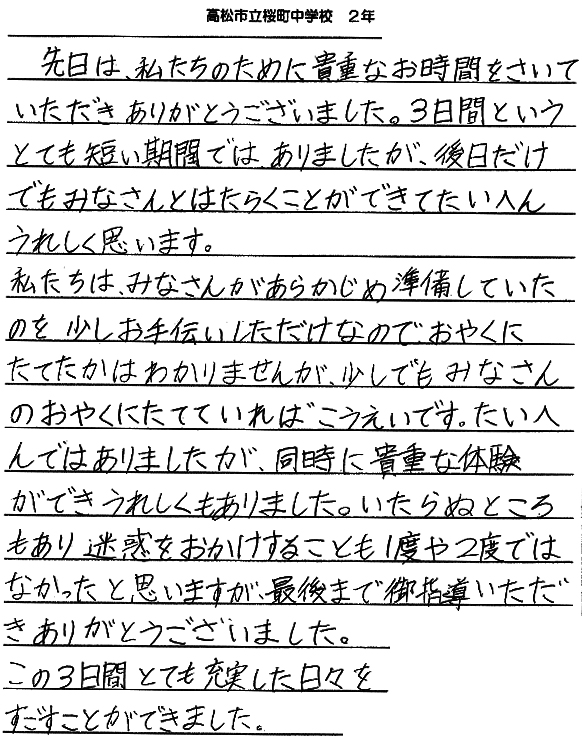 高松市立桜町中学校　2年
先日は、私たちのために貴重なお時間をさいて
いただきありがとうございました。3日間という
とても短い期間ではありましたが、後日だけ
でもみなさんとはたらくことができてたいへん
うれしく思います。
私たちは、みなさんがあらかじめ準備していた
のを少しお手伝いしただけなのでおやくに
たてたかはわかりませんが、少しでもみなさん
のおやくにたてていればこうえいです。たいへ
んではありましたが、同時に貴重な体験
ができうれしくもありました。いたらぬところ
もあり迷惑をおかけすることも1度や2度では
なかったと思いますが、最後まで御指導いただ
きありがとうございました。
この3日間とても充実した日々を
すごすことができました。